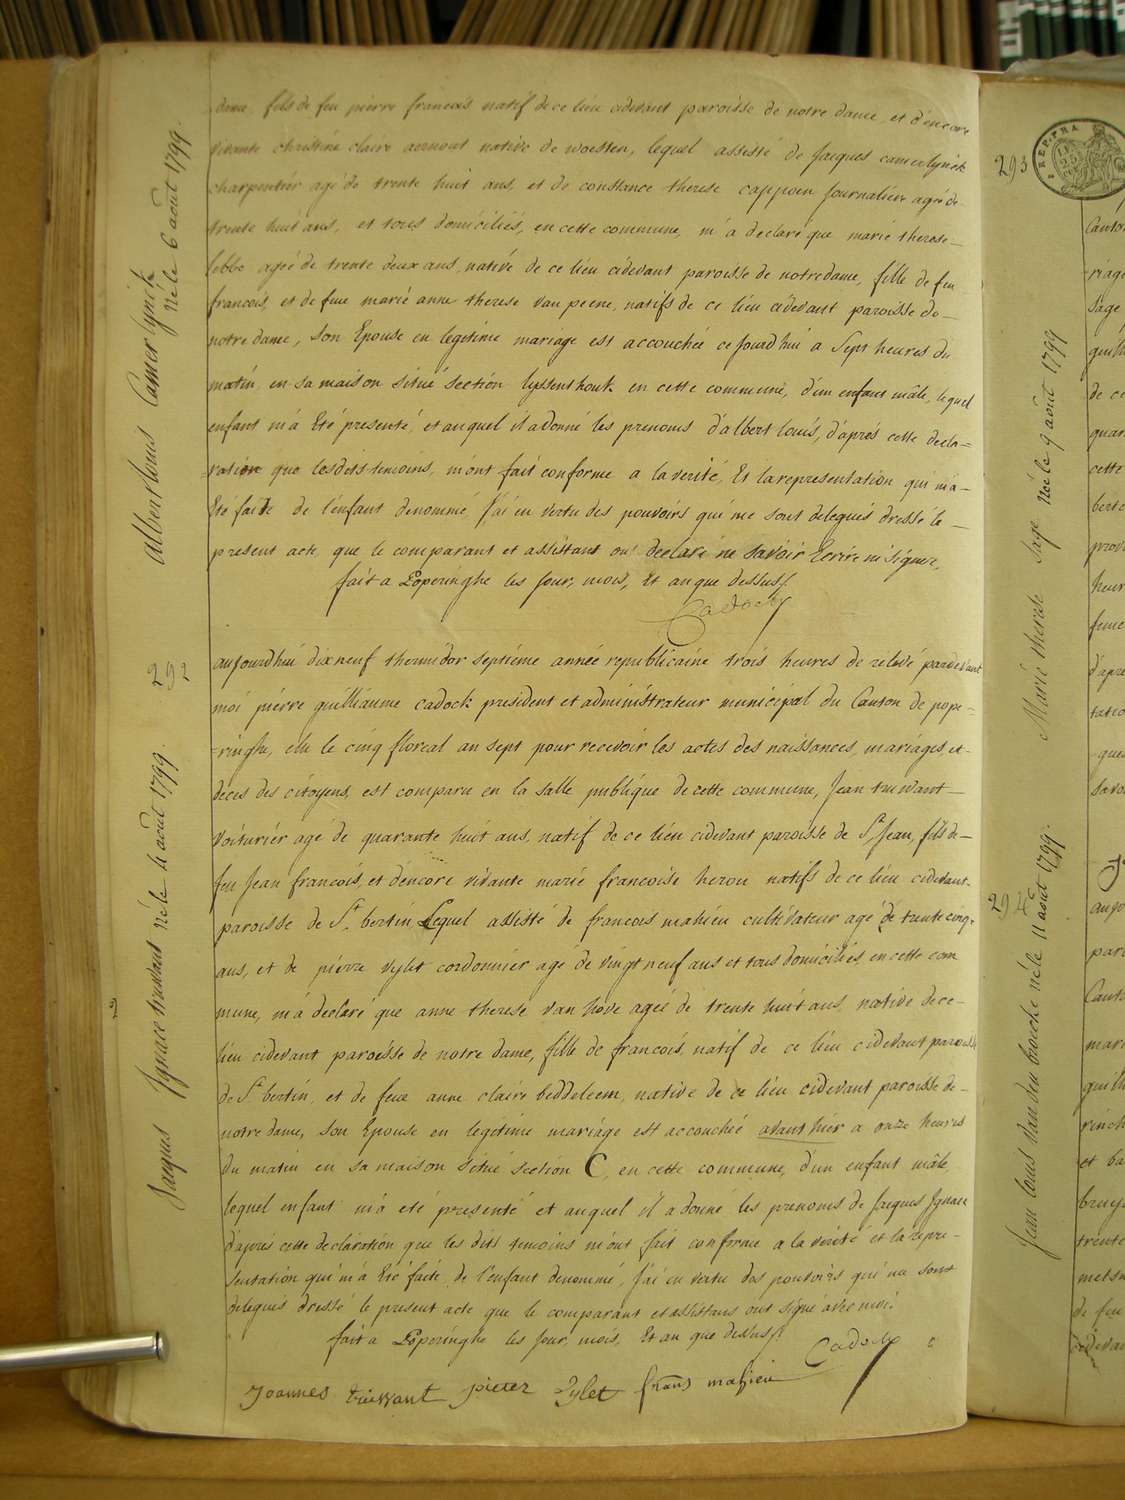 dame, fils de feu pierre francois natif de ce lieu cidevant paroisse de notre dame, et d'encore
vivante christine claire aernout native de woesten, lequel assisté de Jacques camerlynck
charpentier agé de trente huit ans, et de constance therese cappoen Journaliere ageé de
trente huit ans, et tous domiciliés, en cette commune, m'a declaré que marie therese
lebbe ageé de trente deux ans, native de ce lieu cidevant paroisse de notre dame, fille de feu
francois, et de feue marie anne therese van peene, natifs de ce lieu cidevant paroisse de
notre dame, son Epouse en legitime mariage est accouchée ce Jourd'hui a Sept heures du
matin, en sa maison situé section lyssenthouk en cette commune, d'un enfant mâle, lequel
enfant m'a Eté presenté, et auquel il a donné les prenoms d'albert louis, d'aprés cette decla=
ration que les dits temoins, m'ont fait conforme a la verité, Et la representation qui m'a
Eté faite de l'enfant denommé, J'ai en vertu des pouvoirs qui me sont delegués dressé le
present acte, que le comparant et assistant ont declaré ne savoir Ecrire ni signer,
fait a Poperinghe les Jour, mois, Et an que dessus
Cadock
Albert louis Camerlynck
né le 6 août 1799.
292
aujourdhui dixneuf thermidor septiéme année republicaine trois heures de relevé pardevant
moi pierre guilliaume cadock president et administrateur municipal du Canton de pope=
=ringhe, elu le cinq floreal an sept pour recevoir les actes des naissances, mariages, et
déces des citoyens, est comparu en la salle publique de cette commune, Jean truwant
voiturier agé de quarante huit ans, natif de ce lieu cidevant paroisse de St. Jean, fils de
feu Jean francois, et d'encore vivante marie francoise herou natifs de ce lieu cidevant
paroisse de St. bertin, Lequel assisté de francois mahieu cultivateur agé de trente cinq
ans, et de pierre Sylet cordonnier agé de vingt neuf ans et tous domiciliés en cette com
mune, m'a declaré que anne therese van hove ageé de trente huit ans, native de ce
lieu cidevant paroisse de notre dame, fille de francois, natif de ce lieu cidevant paroisse
de St. bertin, et de feue anne claire beddeleem, native de ce lieu cidevant paroisse de
notre dame, son Epouse en legitime mariage est accouchée avant hier a onze heures
du matin en sa maison situé section C, en cette commune, d'un enfant mâle,
lequel enfant m'a eté presenté et auquel il a donné les prenoms de Jacques Ignace
d'aprés cette declaration que les dits temoins m'ont fait conforme a la verité et la repre=
sentation qui m'a Eté faite, de l'enfant denommé, J'ai en vertu des pouvoirs qui me sont
delegués dressé le present acte que le comparant et assistans ont signé avec moi.
fait a Poperinghe les Jour, mois, Et an que dessus
Cadock
Joannes truwant pieter Sylet frans mahieu
Jacques Ignace truwant né le 4 août 1799.
2
293
Marie therese Sage née le 9 août 1799
294
Jean louis Van den broecke né le 11 août 1799.
REP. FRA
Canton
riage
Sage
guilli
de ce
quar
cette
berte
prov
heur
feue
d'apre
tatio
que
Savo
aujo
par
Canto
mari
guilli
rinch
et ba
bruy
trente
mets
de feu
cidevan